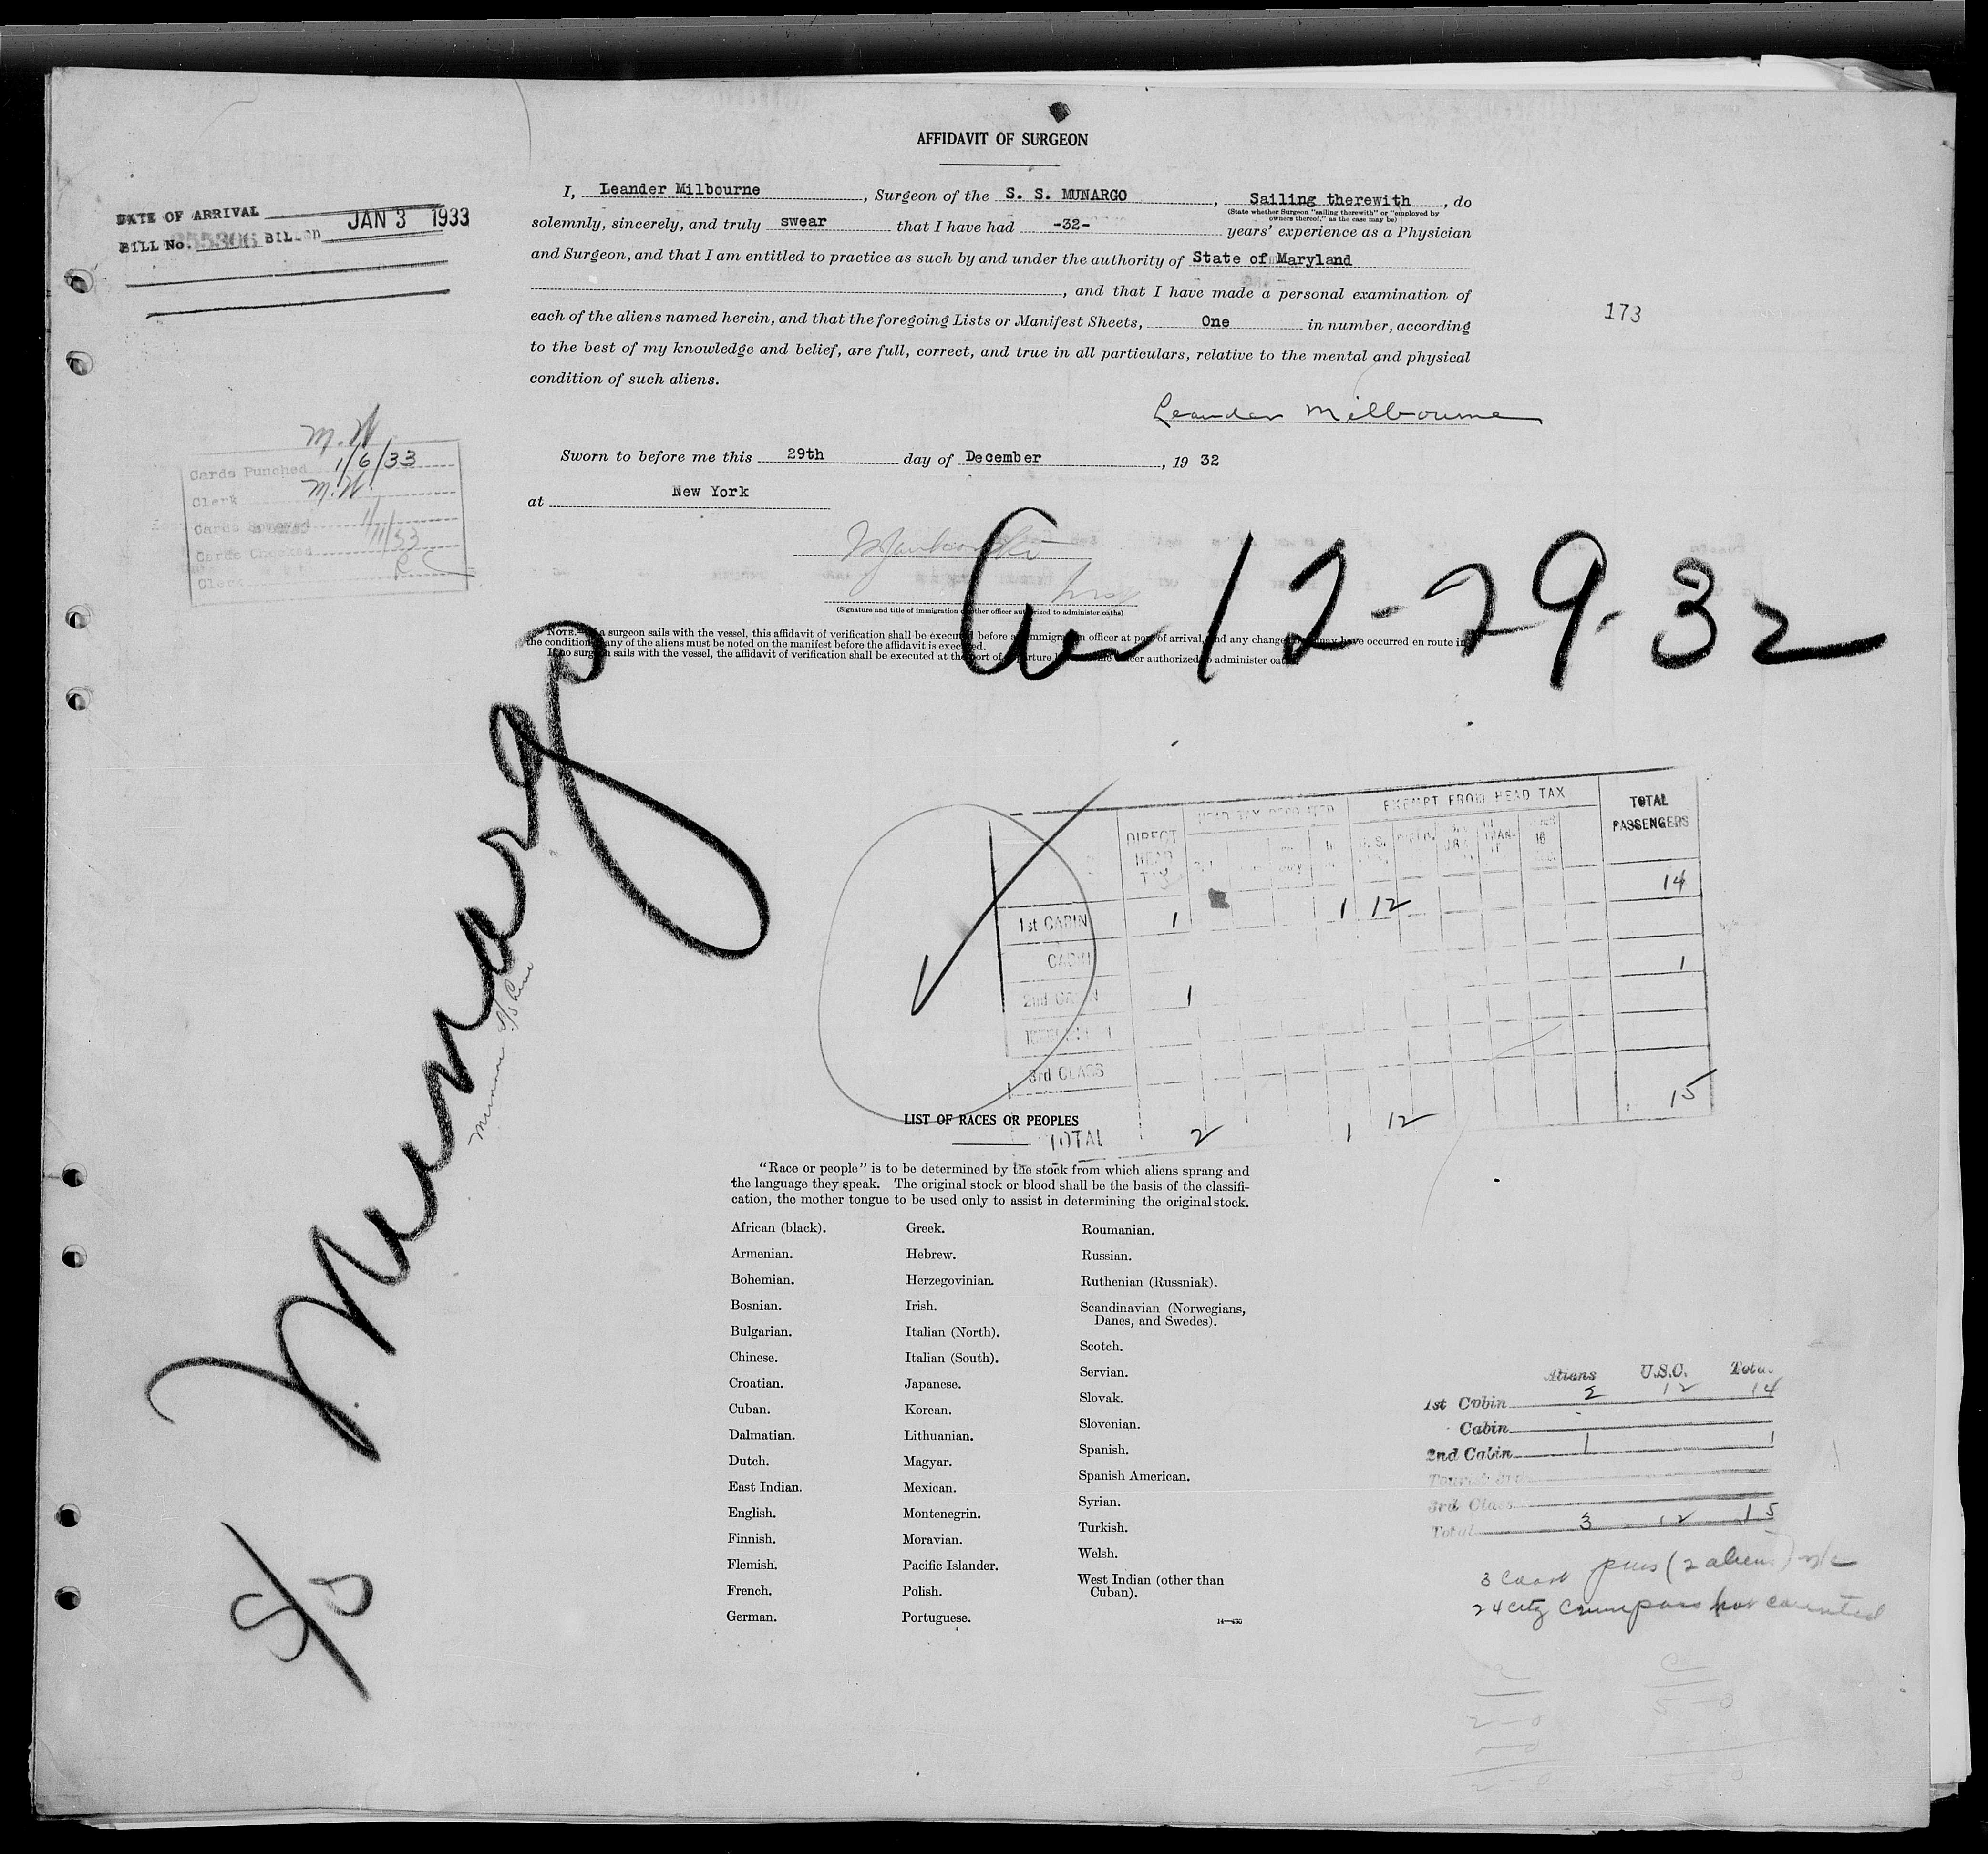 AFFIDAVIT OF SURGEON
I, Leander Milbourne, Surgeon of the S. S. MUNARGO, Sailing therewith, do
(State whether Surgeon "sailing therewith" or "employed by
owners thereof," as the case may be)
solemnly, sincerely, and truly swear that I have had -32- years' experience as a Physician
and Surgeon, and that I am entitled to practice as such by and under the authority of State of Maryland
, and that I have made a personal examination of
each of the aliens named herein, and that the foregoing Lists or Manifest Sheets, One in number, according
to the best of my knowledge and belief, are full, correct, and true in all particulars, relative to the mental and physical
condition of such aliens.
Leander Milbourne
Sworn to before me this 29th day of December, 19 32
at New York
(Signature and title of immigration or other officer authorized to administer oaths)
DATE OF ARRIVAL
BILL No. 355306 BILLED JAN 3 1933
173
M.W
Cards Punched 1/6/33
Clerk M.W.
Cards
Cards Checked 1/11/33
Clerk
NOTE.—If a surgeon sails with the vessel, this affidavit of verification shall be executed before an immigration officer at port of arrival, and any changes may have occurred en route in
the condition any of the aliens must be noted on the manifest before the affidavit is executed.
If no surgeon sails with the vessel, the affidavit of verification shall be executed at the port of departure officer authorized to administer oaths
Arr 12-29-32
S/S Munargo
Munson S/S Line
DIRECT HEAD TAX
EXEMPT FROM HEAD TAX
TOTAL PASSENGERS
1st CABIN 1 1 12 14
CABIN
2nd CABIN 1 1
3rd CLASS
TOTAL 2 1 12 15
LIST OF RACES OR PEOPLES
"Race or people" is to be determined by the stock from which aliens sprang and
the language they speak. The original stock or blood shall be the basis of the classifi-
cation, the mother tongue to be used only to assist in determining the original stock.
African (black).
Armenian.
Bohemian.
Bosnian.
Bulgarian.
Chinese.
Croatian.
Cuban.
Dalmatian.
Dutch.
East Indian.
English.
Finnish.
Flemish.
French.
German.
Greek.
Hebrew.
Herzegovinian.
Irish.
Italian (North).
Italian (South).
Japanese.
Korean.
Lithuanian.
Magyar.
Mexican.
Montenegrin.
Moravian.
Pacific Islander.
Polish.
Portuguese.
Roumanian.
Russian.
Ruthenian (Russniak).
Scandinavian (Norwegians,
Danes, and Swedes).
Scotch.
Servian.
Slovak.
Slovenian.
Spanish.
Spanish American.
Syrian.
Turkish.
Welsh.
West Indian (other than
Cuban).
14—430
Aliens U.S.C. Total
1st Cabin 2 12 14
Cabin
2nd Cabin 1 1
Tourist 3rd
3rd Class
Total 3 12 15
3 pass (2 aliens)
24 city pass not counted